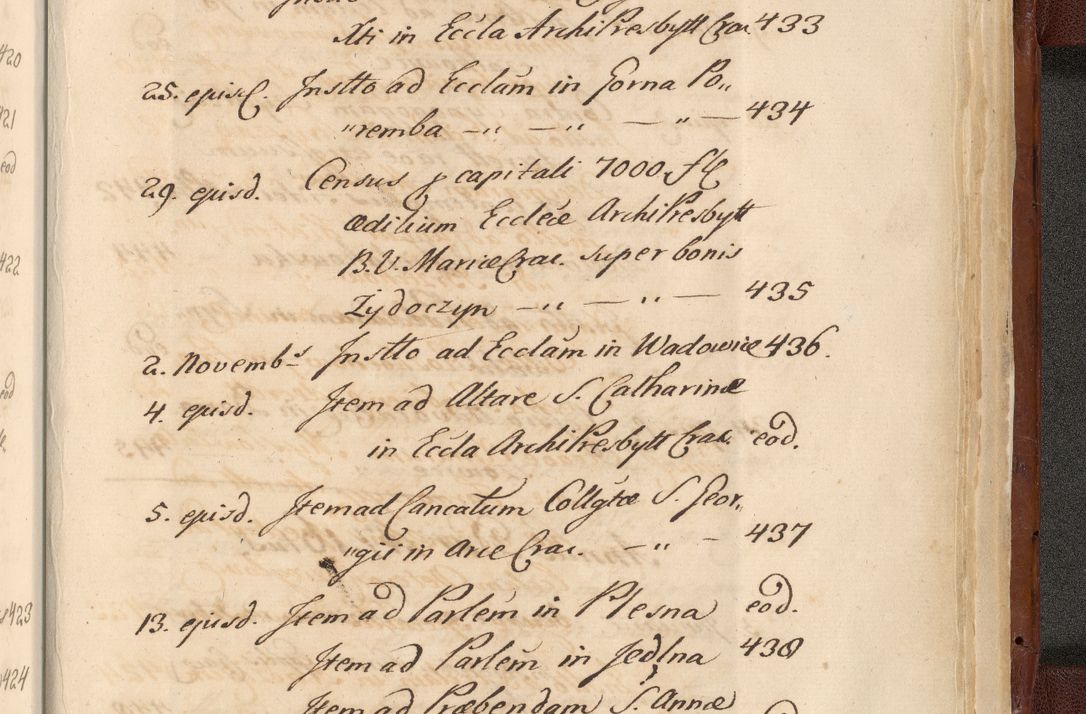 Xti in Eccla ArchiPresbytt Crac 433
25. episd. Instto ad Ecclam in Gorna Po„
„remba —„ —„ — „ — 434
29. episd. Census p capitali 7000 fl
ædilium Eccleæ ArchiPresbytt
B.V. Mariæ Crac. super bonis
Zydoczyn —„ — „ — 435
2. Novembs Instto ad Ecclam in Wadowice 436.
4. episd. Item ad Altare S. Catharinæ
in Eccla ArchiPresbytt Crac. eod.
5. episd. Item ad Cancatum Collgtæ S. Geor„
„gii in Arce Crac. —„ — 437
13. episd. Item ad Parlem in Plesna eod.
Item ad Parlem in Jedlna 438
Item ad Præbendam S. Annæ
420
421
eod
422
eod
423
424